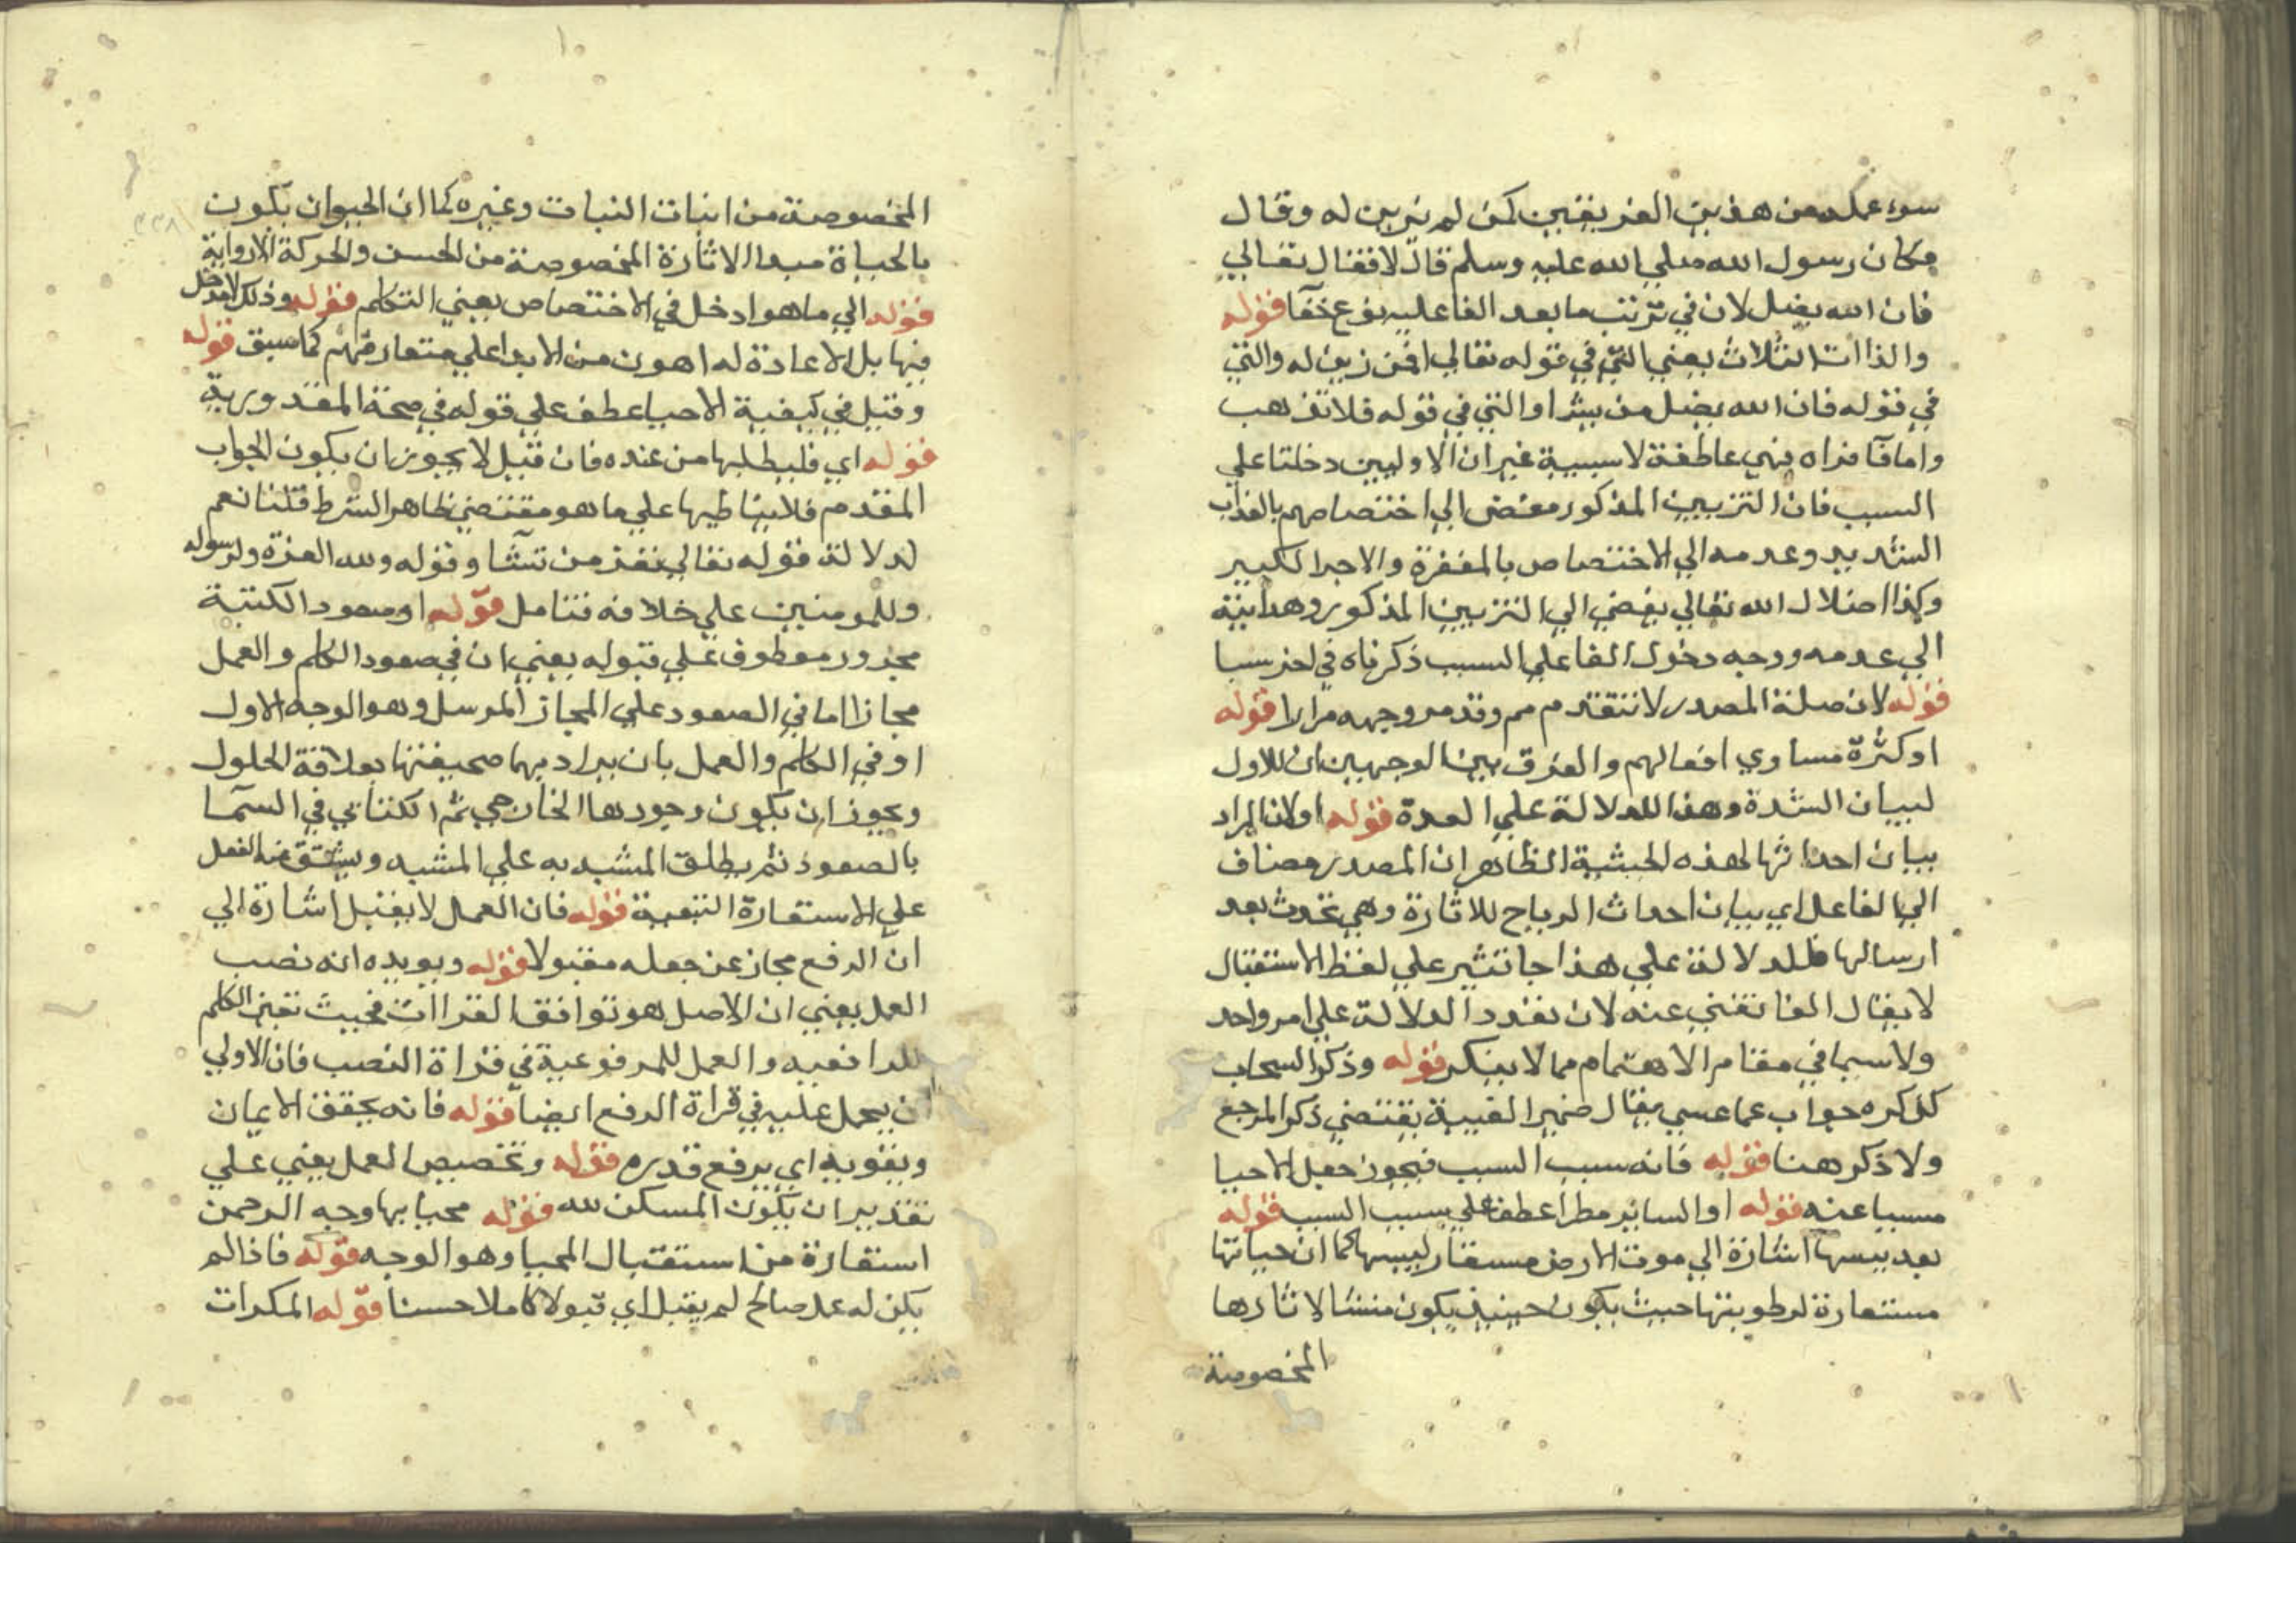 سوء عمله من هذين الفريقين كمن لم يزين له وقال
مكان رسول الله صلي الله عليه وسلم قال لا فقال تعالي
فان الله يضل لان في ترتب ما بعد الفا عليه نوع خفآ قوله
والذا ات الثلاث يعني التي في قوله تعالي افمن زين له والتي
في قوله فان الله يضل من يشا والتي في قوله فلا تذهب
واما فآ فراه فهي عاطفة لا سببية غير ان الاوليين دخلتا علي
السبب فان التزيين المذكور مفضي الي اختصاصهم بالعذاب
الشديد وعدمه الي الاختصاص بالمغفرة والاجر الكبير
وكذا اضلال الله تعالي يفضي الي التزيين المذكور وهدايته
الي عدمه ووجه دخول الفا علي السبب ذكرناه في اخر سبا
قوله لان صلة المصدر لا تتقدم مم وقد مر وجهه مرارا قوله
او كثرة مساوي افعالهم والفرق بين الوجهين ان للاول
لبيان الشدة وهذا للدلالة علي العدة قوله اولان المراد
بيان احداثها لهذه الحيثية الظاهر ان المصدر مضاف
الي الفاعل اي بيان احداث الرياح للاثارة وهي تحدث بعد
ارسالها فللدلالة علي هذا جا تثير علي لفظ الاستقبال
لا يقال الفا تغني عنه لان تعدد الدلالة علي امر واحد
ولا سيما في مقام الاهتمام مما لا ينكر قوله وذكر السحاب
كذكره جواب عما عسي يقال ضمير الغيبة يقتضي ذكر المرجع
ولا ذكر هنا قوله فانه سبب السبب فيجوز جعل الاحيا
مسببا عنه قوله او الساير مطرا عطف علي سبب السبب قوله
بعد يبسها اشارة الي موت الارض مستعار ليبسها كما ان حياتها
مستعارة لرطوبتها حيث يكون حينيذ يكون منشا لاثارها
المخصوصة
المخصوصة من انبات النبات وغيره كما ان الحيوان يكون
بالحياة مبدا الاثارة المخصوصة من الحسن والحركة الارادية
قوله الي ما هو ادخل في الاختصاص يعني التكلم قوله وذلك لا دخل
فيها بل الاعادة له اهون من الابدا علي متعارفهم كما سبق قوله
وقيل في كيفية الاحيا عطف علي قوله في صحة المقدورية
قوله اي فليطلبها من عنده فان قيل لا يجوز ان يكون الجواب
المقدم فلا يناطيها علي ما هو مقتضي ظاهر الشرط قلنا نعم
لدلالة قوله تعالي تعز من تشآ وقوله ولله العزة ولرسوله
وللمومنين علي خلافه فتامل قوله او صعود الكتبة
مجرور معطوف علي قبوله يعني ان في صعود الكلم والعمل
مجازا اما في الصعود علي المجاز المرسل وهو الوجه الاول
او في الكلم والعمل بان يراد بهما صحيفتها بعلاقة الحلول
ويجوز ان يكون وجودها الخارجي ثم الكتابي في السمآ
بالصعود ثم يطلق المشبه به علي المشبه ويشتق منه الفعل
علي الاستعارة التبعية قوله فان العمل لا يقبل اشارة الي
ان الرفع مجاز عن جعله مقبولا قوله ويويده انه نصب
العمل يعني ان الاصل هو توافق القراات فحيث تعين الكلم
للرافعيه والعمل للمرفوعية في قراة النصب فان الاولي
ان يحمل عليه في قراة الرفع ايضا قوله فانه يحقق الايمان
ويقويه اي يرفع قدره قوله وتخصيص العمل يعني علي
تقدير ان يكون المسكن لله قوله محيا بها وجه الرحمن
استعارة من استقبال المحيا وهو الوجه قوله فاذا لم
يكن له عمل صالح لم يقبل اي قبولا كاملا حسنا قوله المكرات